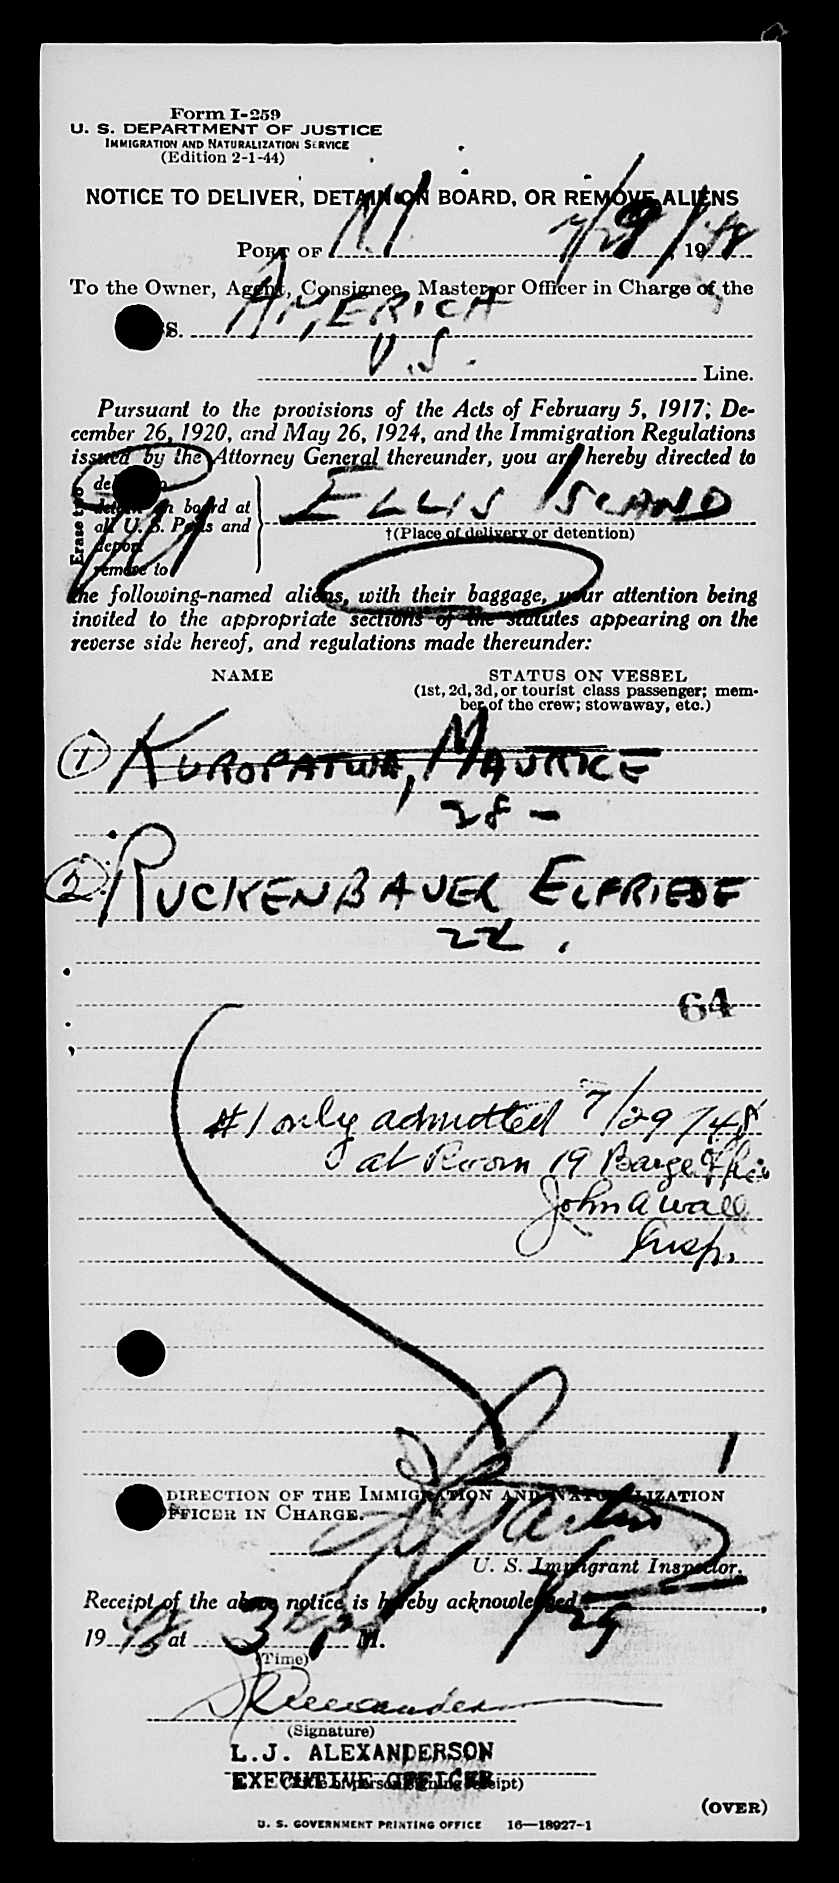 Form I-259
U. S. DEPARTMENT OF JUSTICE
IMMIGRATION AND NATURALIZATION SERVICE
(Edition 2-1-44)
NOTICE TO DELIVER, DETAIN ON BOARD, OR REMOVE ALIENS
PORT OF N.Y 7/29/, 1948
To the Owner, Agent, Consignee, Master or Officer in Charge of the
SS. AMERICA
U.S. Line.
Pursuant to the provisions of the Acts of February 5, 1917; De-
cember 26, 1920, and May 26, 1924, and the Immigration Regulations
issued by the Attorney General thereunder, you are hereby directed to
Erase two
deliver to
detain on board at
all U. S. Ports and
deport
remove to
ELLIS ISLAND
†(Place of delivery or detention)
the following-named aliens, with their baggage, your attention being
invited to the appropriate sections of the statutes appearing on the
reverse side hereof, and regulations made thereunder:
NAME STATUS ON VESSEL
(1st, 2d, 3d, or tourist class passenger; mem-
ber of the crew; stowaway, etc.)
1 KUROPATWA, MAURICE
28 -
2 RUCKENBAUER ELFRIEDE
22.
64
#1 only admitted 7/29/48
at Room 19 Barge Office
John A Wall
Insp.
1
DIRECTION OF THE IMMIGRATION AND NATURALIZATION
OFFICER IN CHARGE.
Martin
U. S. Immigrant Inspector.
Receipt of the above notice is hereby acknowledged 7/29,
1948 at 3 P M.
(Time)
L J Alexanderson
(Signature)
L.J. ALEXANDERSON
EXECUTIVE OFFICER
(Title of person signing receipt)
(OVER)
U. S. GOVERNMENT PRINTING OFFICE 16—18927-1